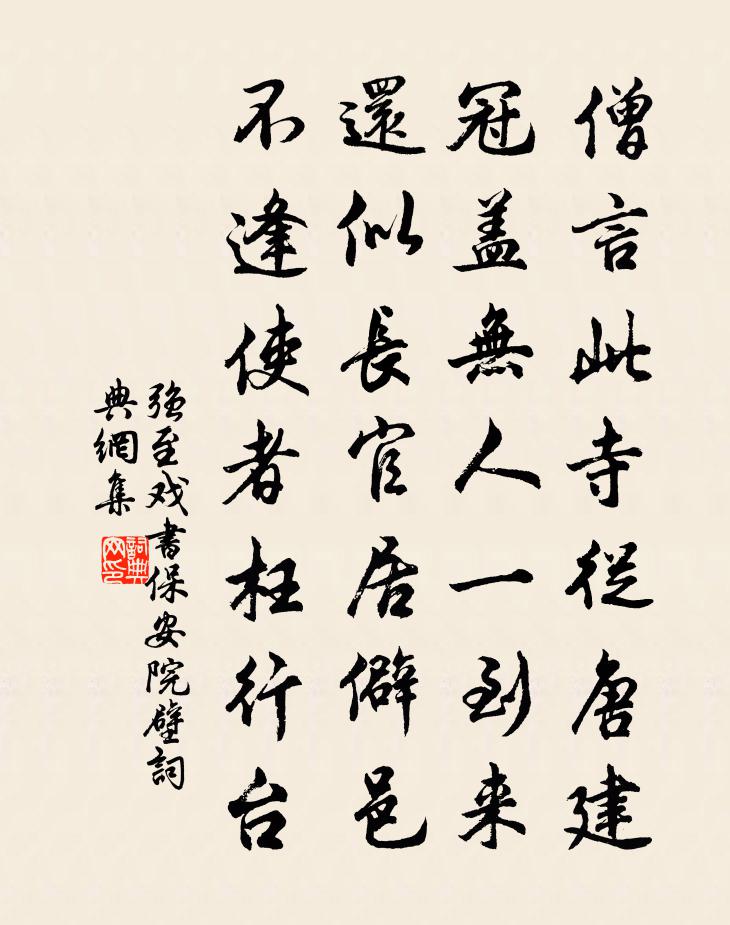 僧言此寺從唐建
冠盖無人一到来
還似長官居僻邑
不逢使者枉行台
强至戏書保安院壁詞
典網集
詞典
网印